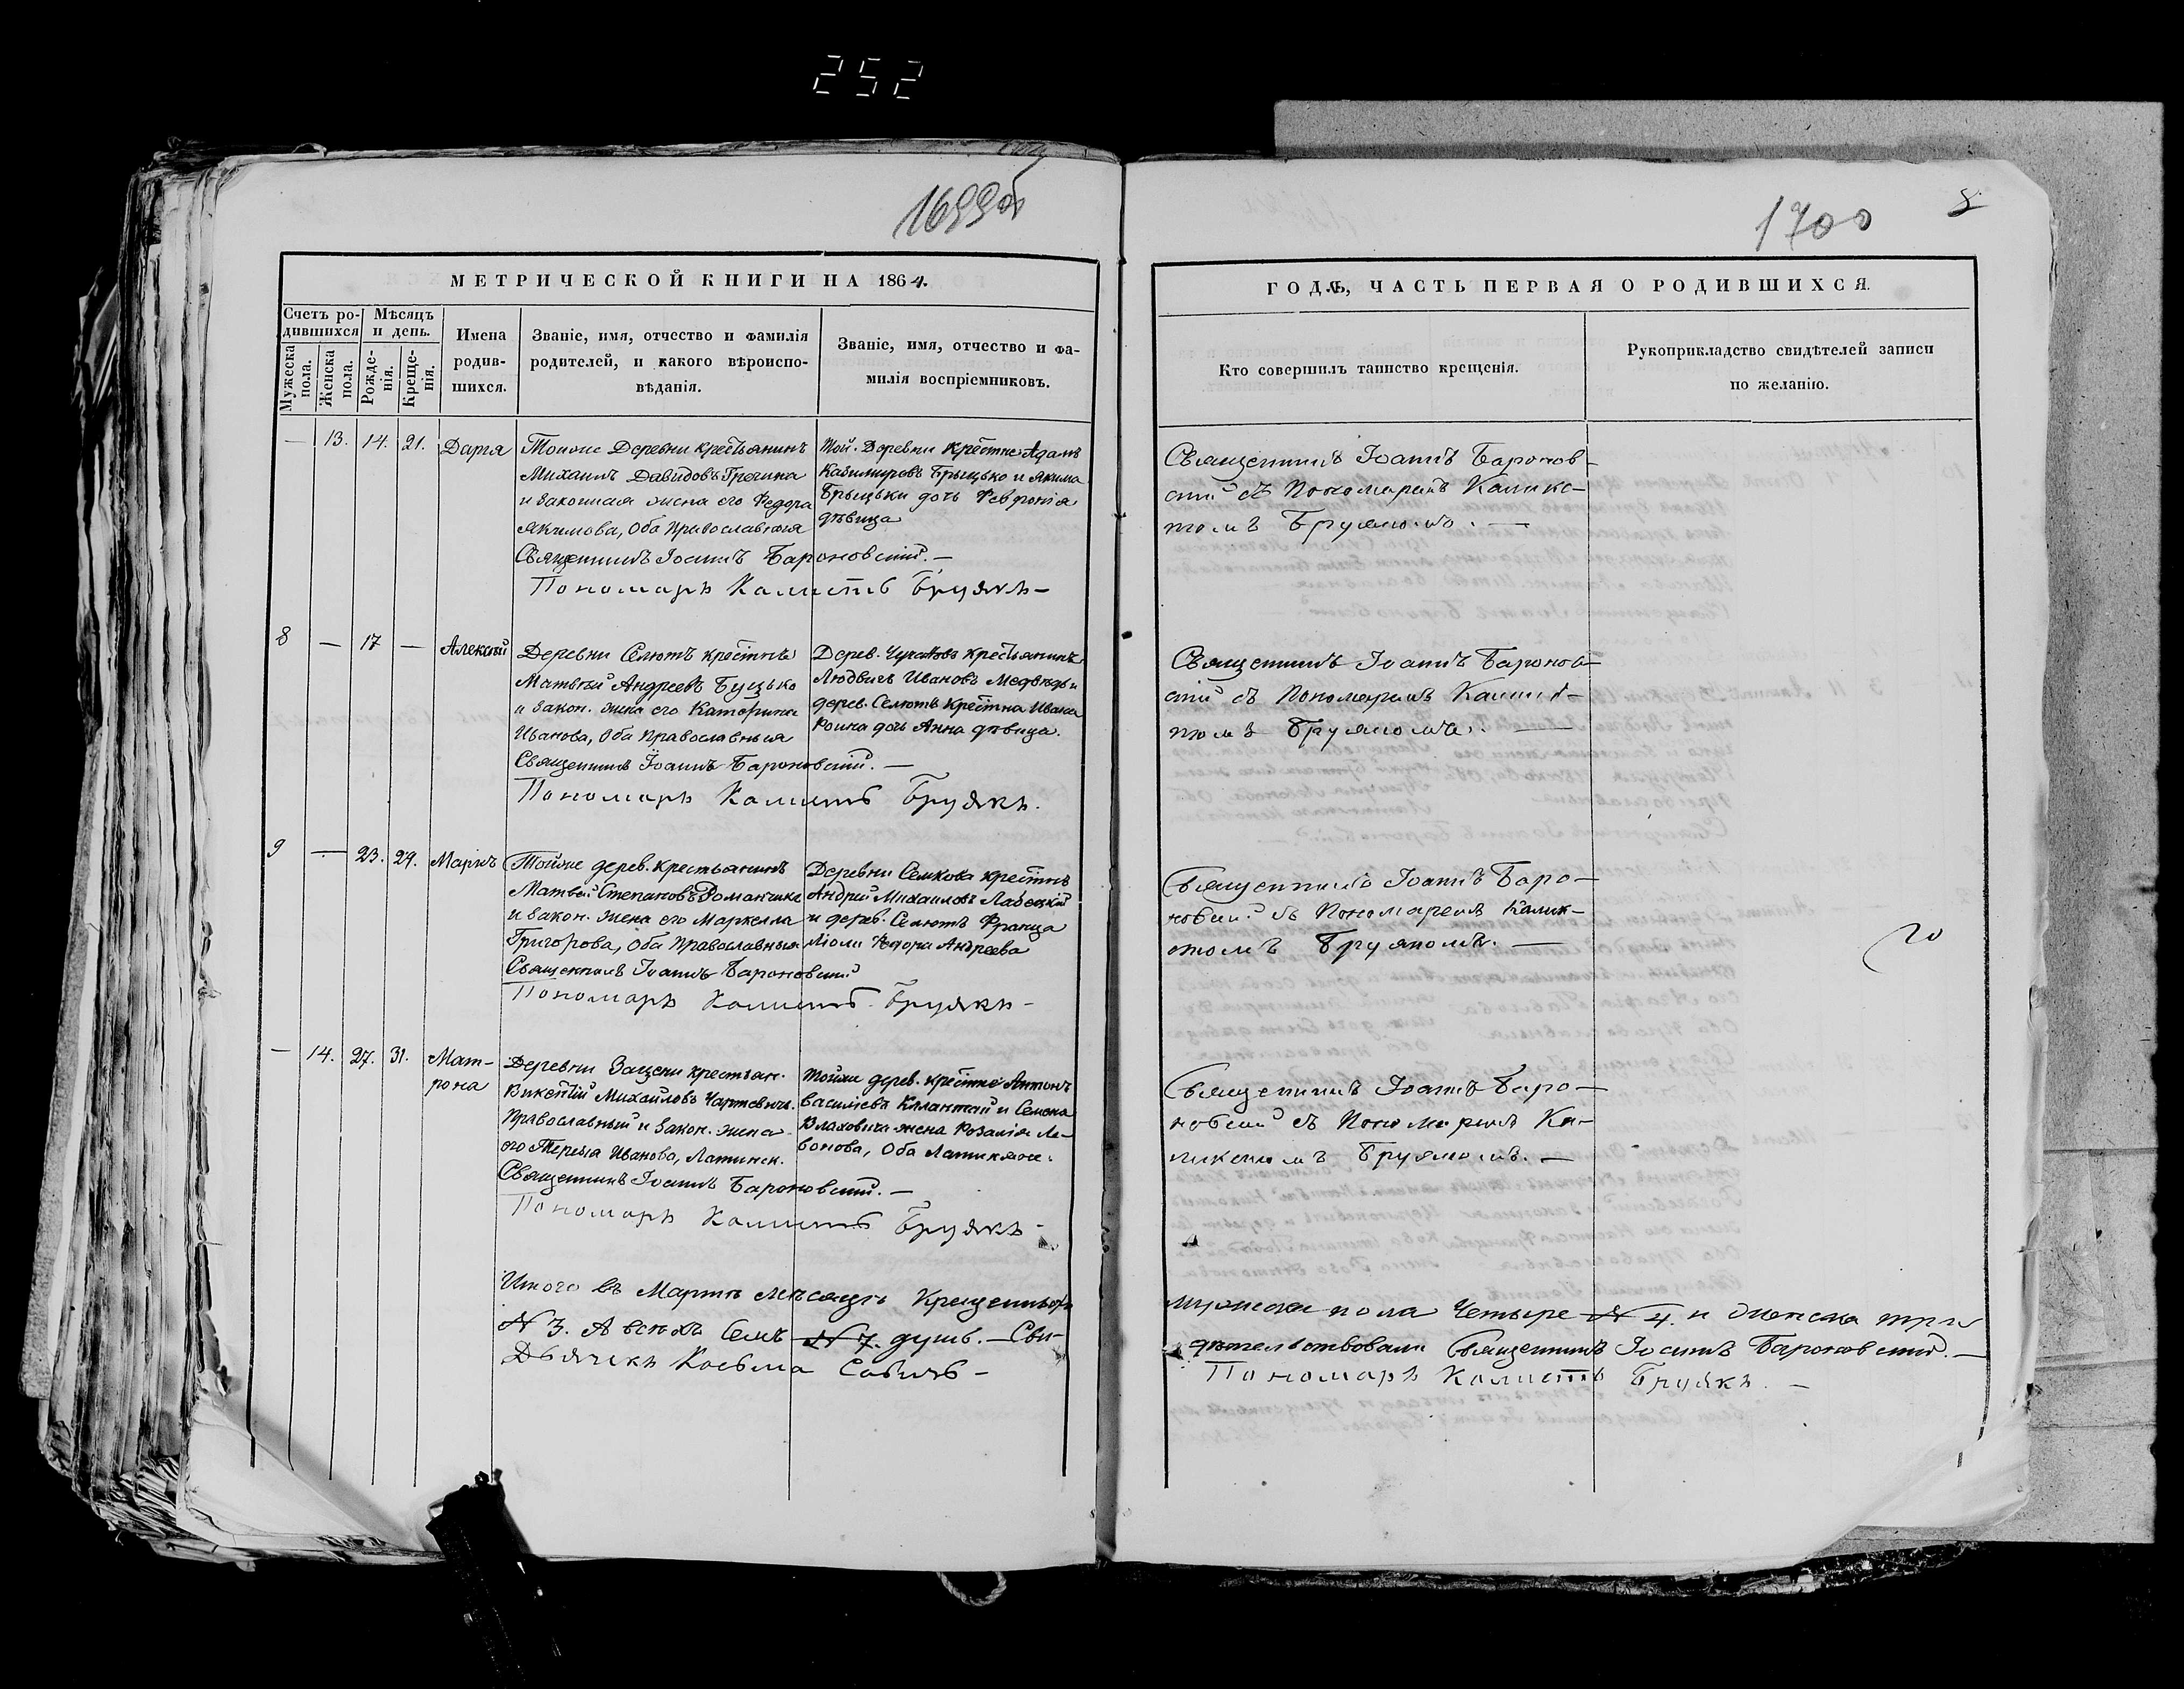 252
1699об
1700
8
МЕТРИЧЕСКОЙ КНИГИ НА 1864.
ГОДЪ, ЧАСТЬ ПЕРВАЯ О РОДИВШИХСЯ.
Счетъ ро-
дившихся
Мѣсяцъ
и день.
Мужеска
пола.
Женска
пола.
Рожде-
нія.
Креще-
нія.
Имена
родив-
шихся.
Званіе, имя, отчество и фамилія
родителей, и какого вѣроиспо-
вѣданія.
Званіе, имя, отчество и фа-
милія воспріемниковъ.
Кто совершилъ таинство крещенія.
Рукоприкладство свидѣтелей записи
по желанію.
— 13. 14. 21. Дарья
Тойже Деревни крестьянинъ
Михаилъ Давидовъ Гречина
и законная жена его Федора
Якимова, Оба Православныя
Священникъ Іоаннъ Бароновскій. —
Пономарь Калистъ Бруякъ —
Той. Деревни Крестне Адамъ
Казимировъ Брыцько и Якима
Брыцьки дочь Февронія
дѣвица
Священникъ Іоаннъ Баронов-
скій съ Пономаремъ Калик-
томъ Бруякомъ. —
8 — 17 — Алексѣй
Деревни Селютъ крестнѣ
Матвѣй Андреевъ Буцько
и закон. жена его Катерина
Иванова, Оба Православныя
Священникъ Іоаннъ Бароновскій. —
Пономарь Калистъ Бруякъ.
Дерев. крестьянинъ
Людвигъ Ивановъ Медвѣдь и
дерев. Селютъ Крестна Ивана
дочь Анна дѣвица.
Священникъ Іоаннъ Баронов-
скій съ Пономаремъ Калик-
томъ Бруякомъ. —
9 — 23. 29. Маркъ
Тойже дерев. крестьянинъ
Матвей Степановъ Романчика
и закон. жена его Маркелла
Григорова, Оба Православныя
Священникъ Іоаннъ Бароновскій
Пономарь Калистъ Бруякъ —
Деревни Семкова крестнѣ
Андрей Михаиловъ
и дерев. Селютъ Франца
Андреева
Священникъ Іоаннъ Баро-
новскій съ Пономаремъ Калик-
стомъ Бруякомъ. —
20
— 14. 27. 31. Мат-
рона
Деревни Защени крестьян.
Викентій Михайловъ
Православный и закон. жена
его Тереза Иванова, Латинск.
Священникъ Іоаннъ Бароновскій. —
Пономарь Калистъ Бруякъ —
Тойже дерев. крестне Антонъ
Василіевъ и Семена
жена Розалія Ле-
вонова, Оба Латиняне.
Священникъ Іоаннъ Баро-
новскій съ Пономаремъ Ка-
ликстомъ Бруякомъ. —
Итого въ Мартѣ мѣсяцѣ Крещенныхъ мужеска пола Четыре № 4. и женска три
№ 3. А всѣхъ Семь № 7. душъ. — Сви- дѣтельствовали Священникъ Іоаннъ Бароновскій. —
Дьячекъ Косьма Савичъ — Пономарь Калистъ Бруякъ. —